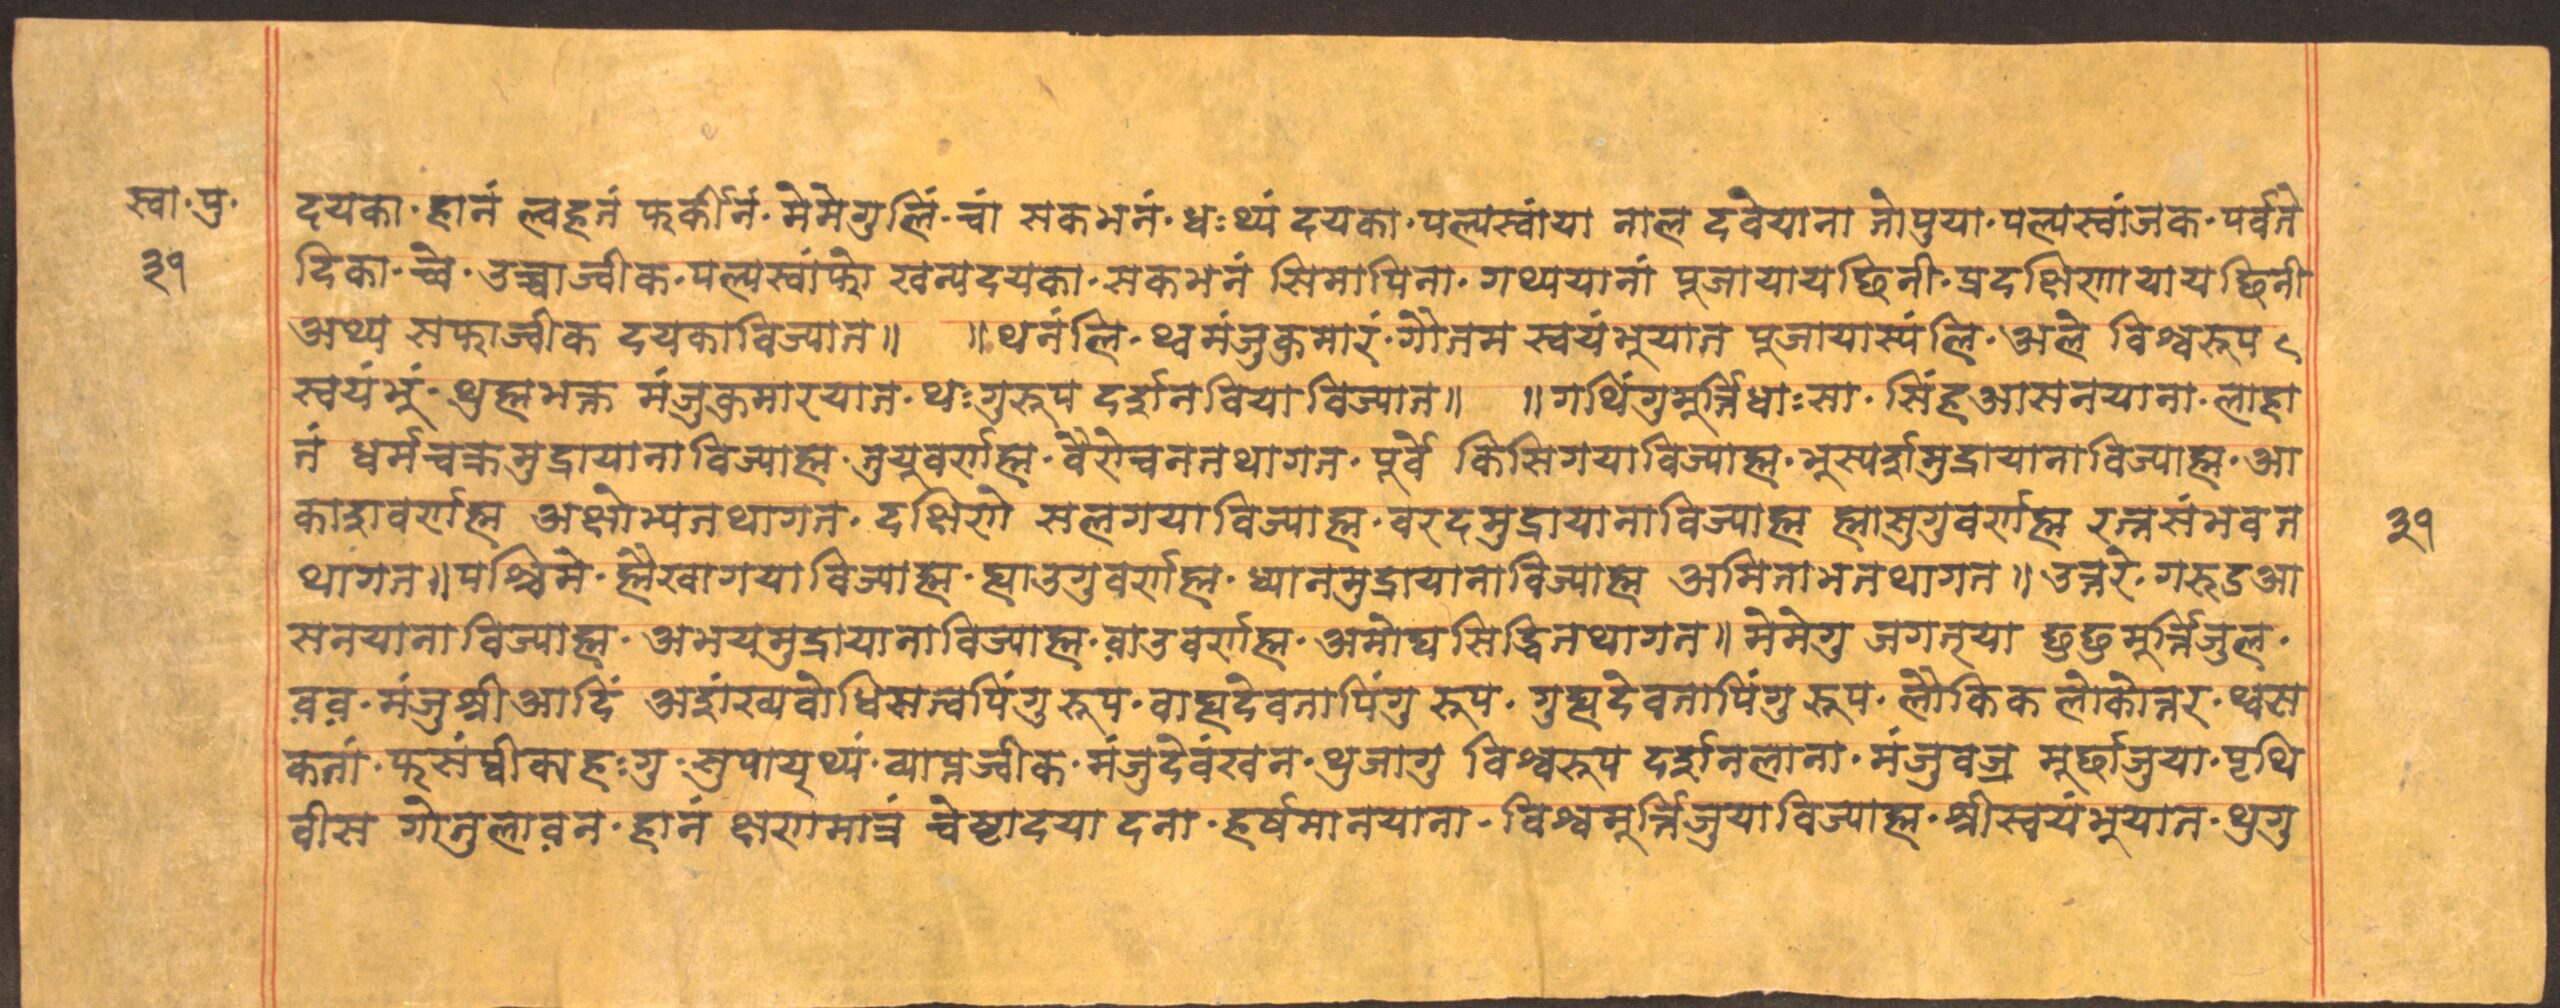 स्वा·पु·
३१
दयका·ह्रानं ल्वहतं फर्कीनं·मेमेगुलिं·चां सकभनं·ध्वःथ्यं दयका·पल्यस्वांया नाल दवेयाना तोपुया·पल्यस्वांजक·पर्वते
दिका·च्वे·उच्चाज्वीक·पल्यस्वांफो खन्यदयका·सकभनं सिमापिना·गथ्ययानां पूजायायछिनी·प्रदक्षिणायायछिनी
अथ्य सफाज्वीक दयकाविज्यात॥ ॥थनंलि·थ्वमंजुकुमारं·गौतम स्वयंभुयात पूजायास्यंलि·अले विश्वरूप
स्वयंभुं·थुह्मभक्त मंजुकुमारयात·थःगुरूप दर्शनविया विज्यात॥ ॥गथिंगुमूर्त्तिधाःसा·सिंहआसनयाना·लाहा
तं धर्मचक्रमुद्रायानाविज्याह्म·तुयूवर्णह्म·वैरोचनतथागत·पूर्वे किसिगयाविज्याह्म·भुस्पर्शमुद्रायानाविज्याह्म·आ
काशवर्णह्म अक्षोभ्यतथागत·दक्षिणे सलगयाविज्याह्म·वरदमुद्रायानाविज्याह्म ह्मासुगुवर्णह्म रत्नसंभवत
थागत॥पश्चिमे·ह्मैखागयाविज्याह्म·ह्याउगुवर्णह्म·ध्यानमुद्रायानाविज्याह्म अमिताभतथागत॥उत्तरे·गरुडआ
सनयानाविज्याह्म·अभयमुद्रायानाविज्याह्म·वाउवर्णह्म·अमोघसिद्धितथागत॥मेमेगु जगत्या छुछुमूर्त्तिजुल·
वव·मंजुश्रीआदिं अशंख्यवोधिसत्वपिंगु रूप·वाह्यदेवतापिंगु रूप·गुह्यदेवतापिंगु रूप·लौकिक लोकोत्तर·थ्वस
कतां·फसंघीकाहःगु·सुपाय्थ्यं·व्याप्तज्वीक·मंजुदेवंखन·थुजागु विश्वरूप दर्शनलाना·मंजुवज्र मूर्छाजुया·पृथि
वीस गोतुलावन·ह्रानं क्षणमात्रं चेष्टादया दना·हर्षमानयाना·विश्वमूर्त्तिजुयाविज्याह्म·श्रीस्वयंभुयात·थुगु
३१